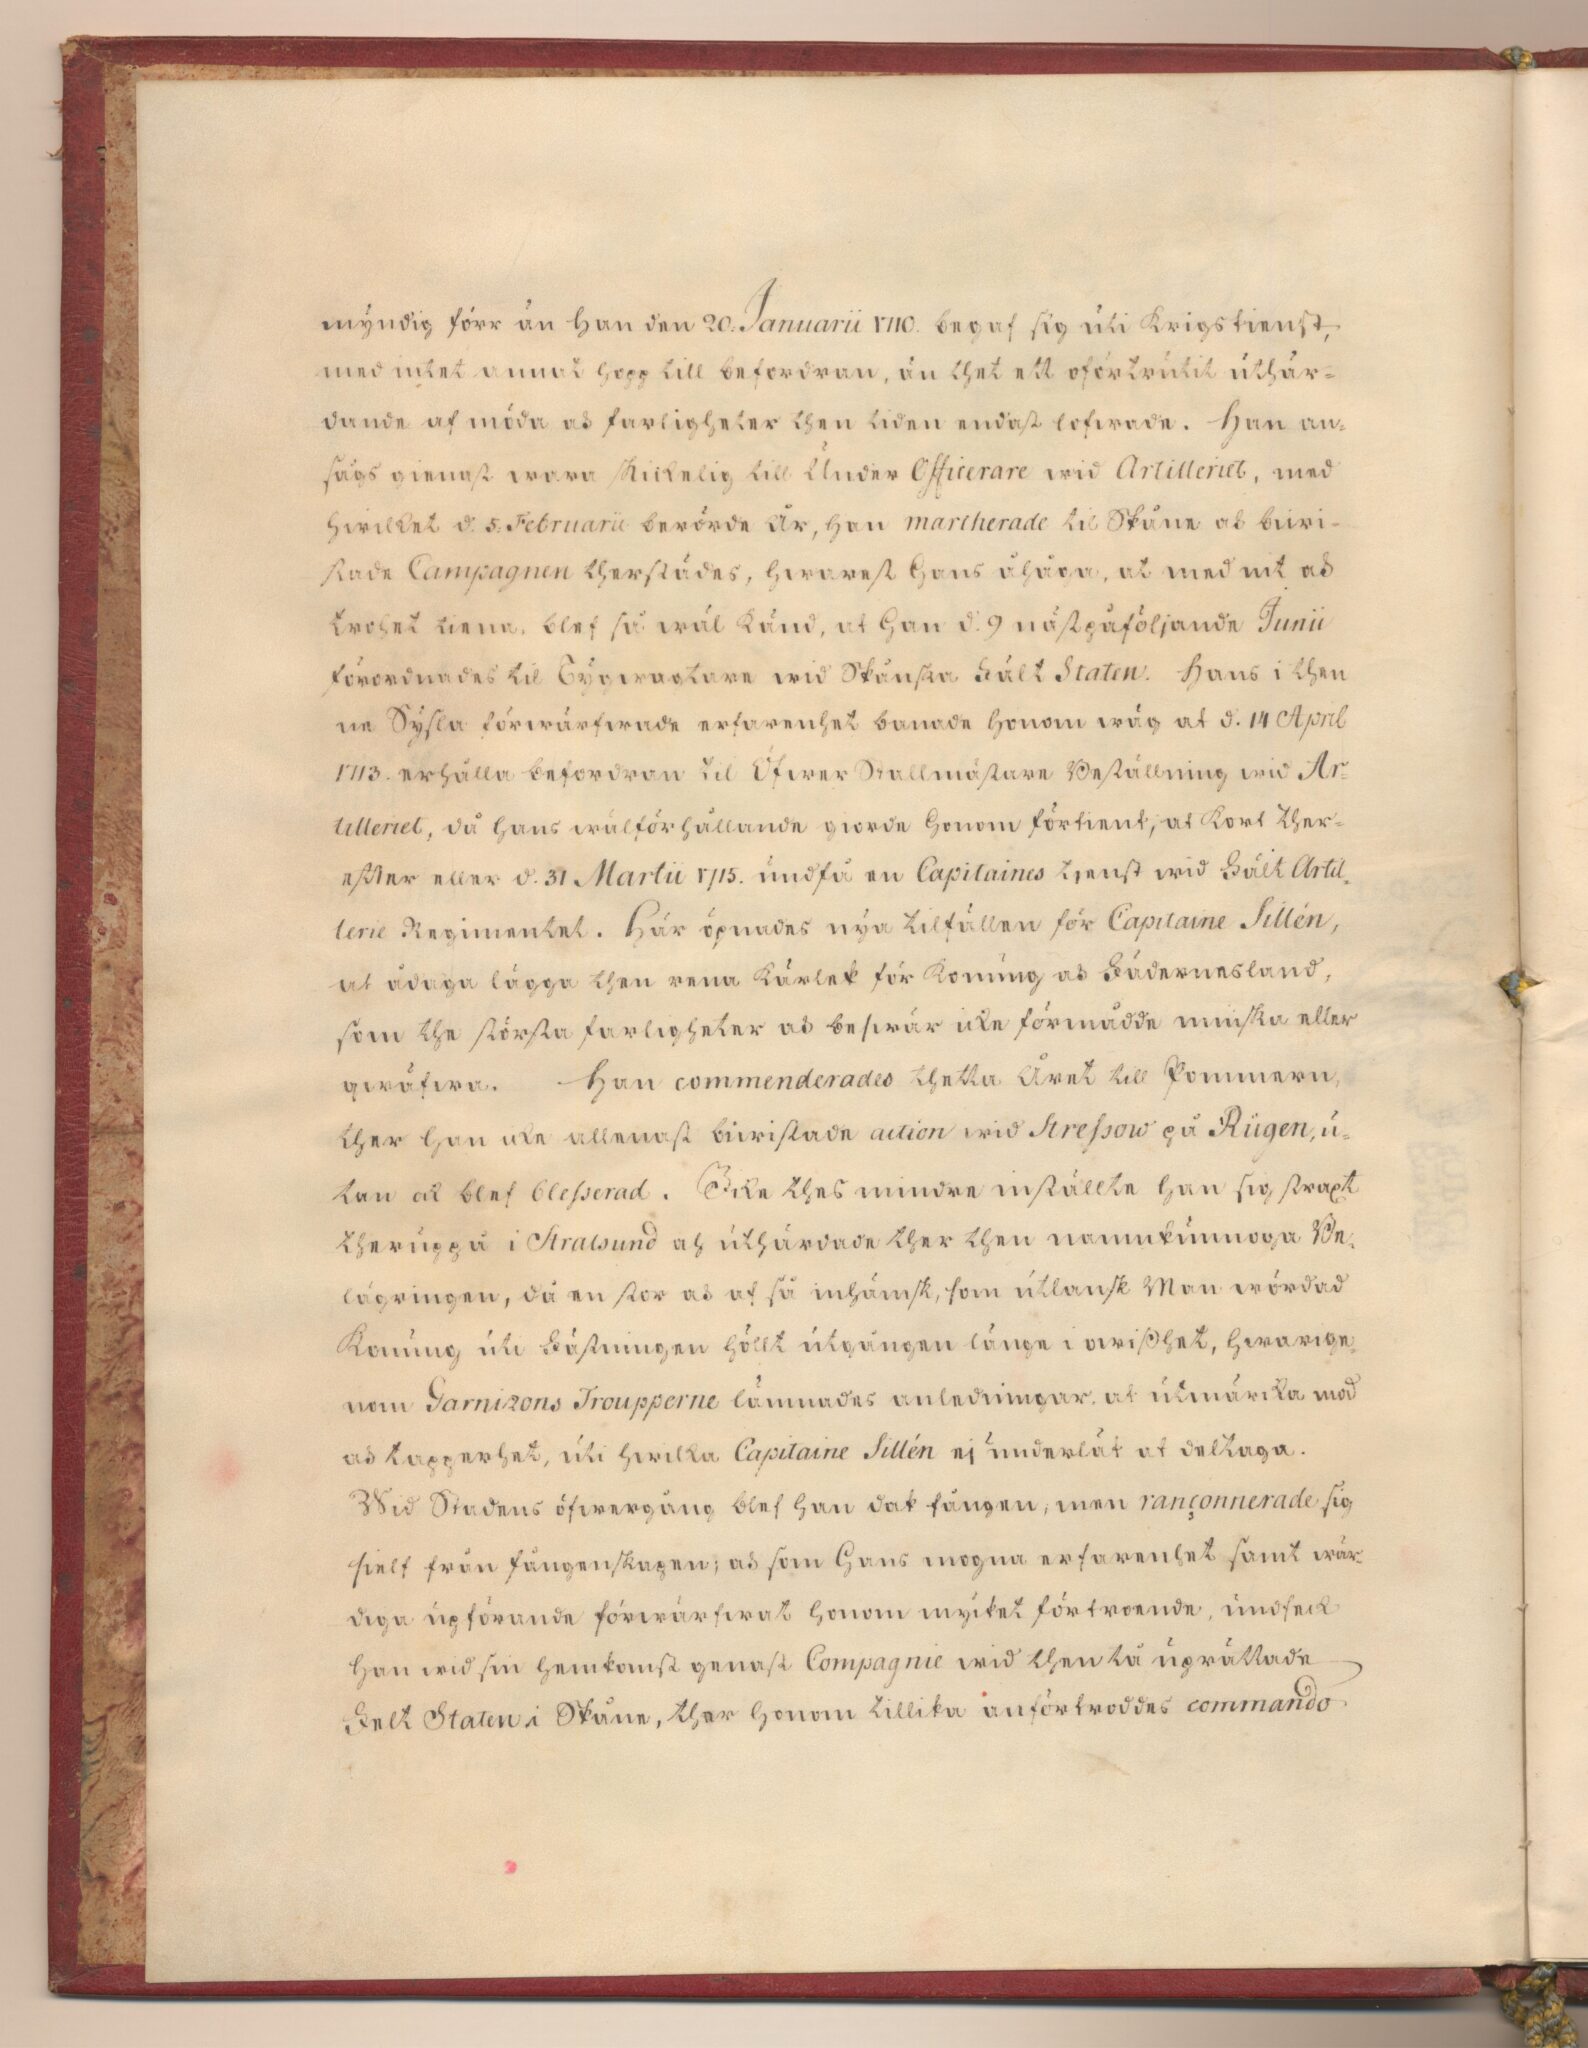 myndig förr än Han den 20. Januarii 1710. begaf sig uti Krigstienst,
med intet annat hopp till befordran, än thet ett oförtrutit uthär-
dande af möda och farligheter then tiden endast lofwade. Han an-
sågs gienast wara skickelig till Under Officerare wid Artilleriet, med
hwilket d. 5. Februarii berörde År, Han marcherade til Skåne och biwi-
stade Campagnen therstädes, hwarest Hans åhåga, at med nit och
trohet tiena, blef så wäl känd, at Han d. 9 nästpåföljande Junii
förordnades til Tygwagtare wid Skånska Fält Staten. Hans i then
ne Sysla förwärfwade erfarenhet banade Honom wäg at d. 14 April
1713. erhålla befordran til Öfwer Stallmästare Beställning wid Ar-
tilleriet, då Hans wälförhållande giorde Honom förtient, at kort ther-
efter eller d. 31 Martii 1715. undfå en Capitaines tjenst wid Fält Artil-
lerie Regimentet. Här öpnades nya tilfällen för Capitaine Sillén,
at ådaga lägga then rena Kärlek för Konung och Fäderneslånd,
som the största farligheter och beswär icke förmådde minska eller
qwäfwa. Han commenderades thetta Året till Pommern,
ther Han icke allenast biwistade action wid Stressow på Rügen, u-
tan ock blef blesserad. Icke thes mindre inställte Han sig straxt
theruppå i Stralsund och uthärdade ther then namnkunnoga Be-
lägringen, då en stor och af så inhämsk, som utlänsk Man wördad
Konung uti Fästningen höllt utgången länge i owisshet, hwarige-
nom Garnizons Troupperne lämnades anledningar at utmärcka mod
och tapperhet, uti hwilka Capitaine Sillén ej underlät at deltaga.
Wid Stadens öfwergång blef Han dock fången, men rançonnerade sig
sielf från fångenskapen; och som Hans mogna erfarenhet samt wär-
diga upförande förwärfwat Honom mycket förtroende, undfeck
Han wid sin hemkomst genast Compagnie wid then tå uprättade
Felt Staten i Skåne, ther Honom tillika anförtroddes commando